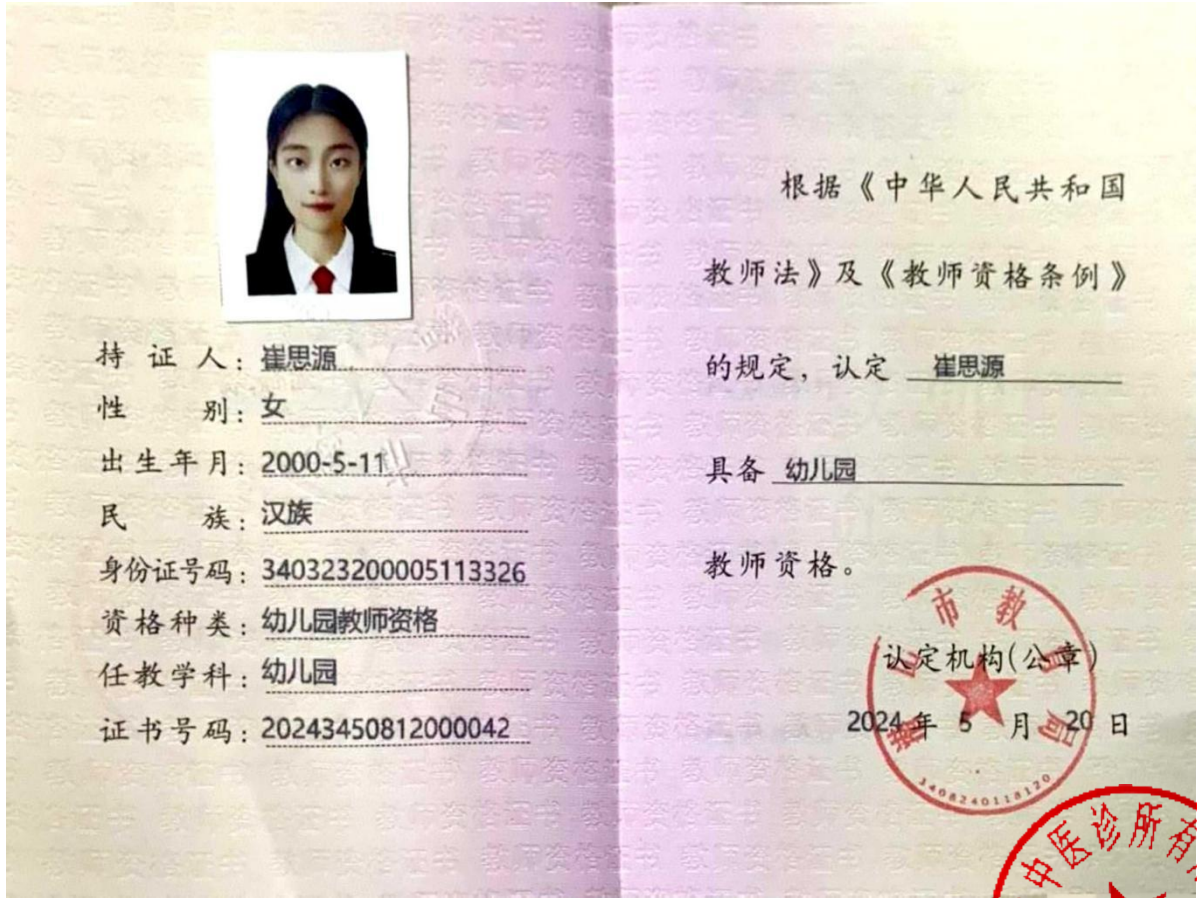 持证人：崔思源
性别：女
出生年月：2000-5-11
民族：汉族
身份证号码：340323200005113326
资格种类：幼儿园教师资格
任教学科：幼儿园
证书号码：20243450812000042
根据《中华人民共和国
教师法》及《教师资格条例》
的规定，认定 崔思源
具备 幼儿园
教师资格。
认定机构（公章）
2024 年 5 月 20 日
市教育局
3408240118120
中医诊所有